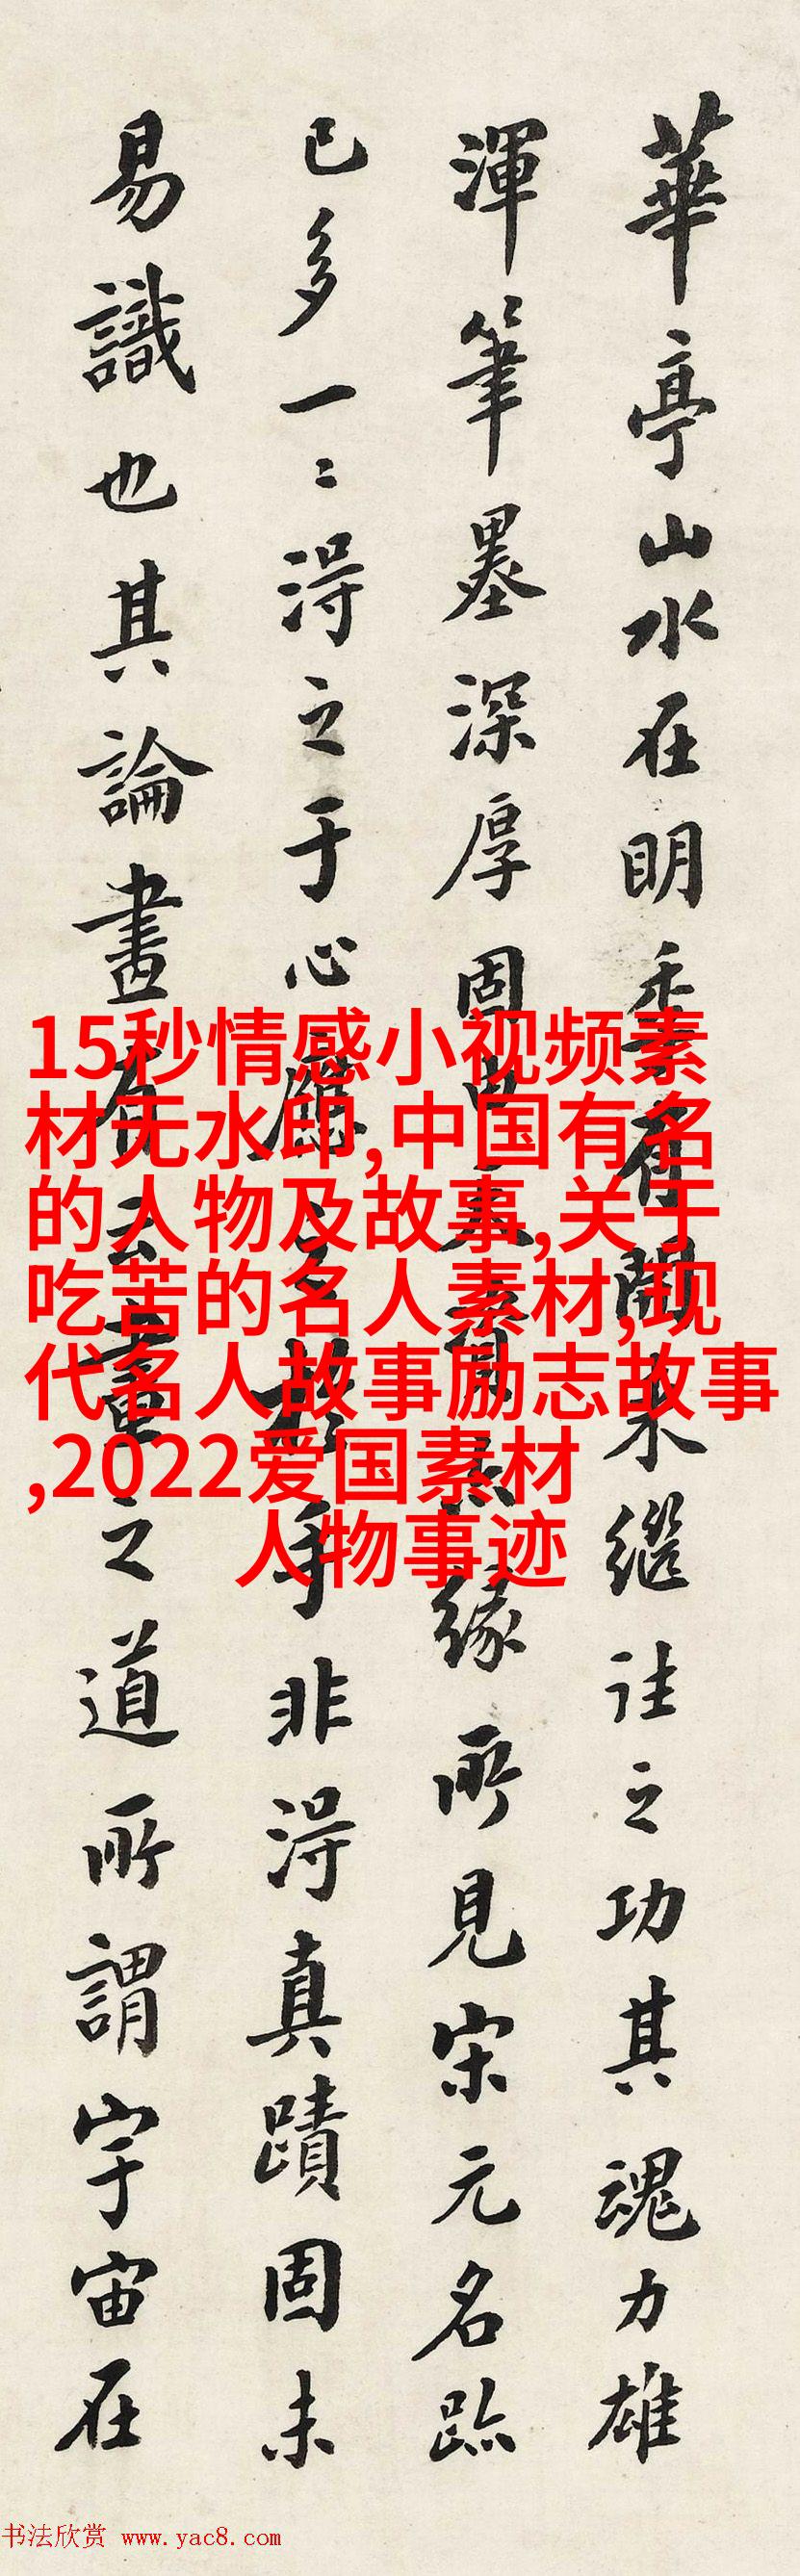 華亭山水在明季有開來繼往之功其魂力雄
渾筆墨深厚固由天資亦緣所見宋元名跡
已多一〻得之于心應之於手非得真蹟固未
易識也其論畫有云畫之道所謂宇宙在
15秒情感小视频素
材无水印,中国有名
的人物及故事,关于
吃苦的名人素材,现
代名人故事励志故事
,2022爱国素材
人物事迹
书法欣赏 www.yac8.com